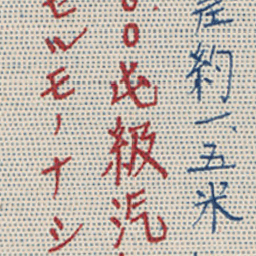 差約一、五米
〇〇屯級汽
モルモーナシ